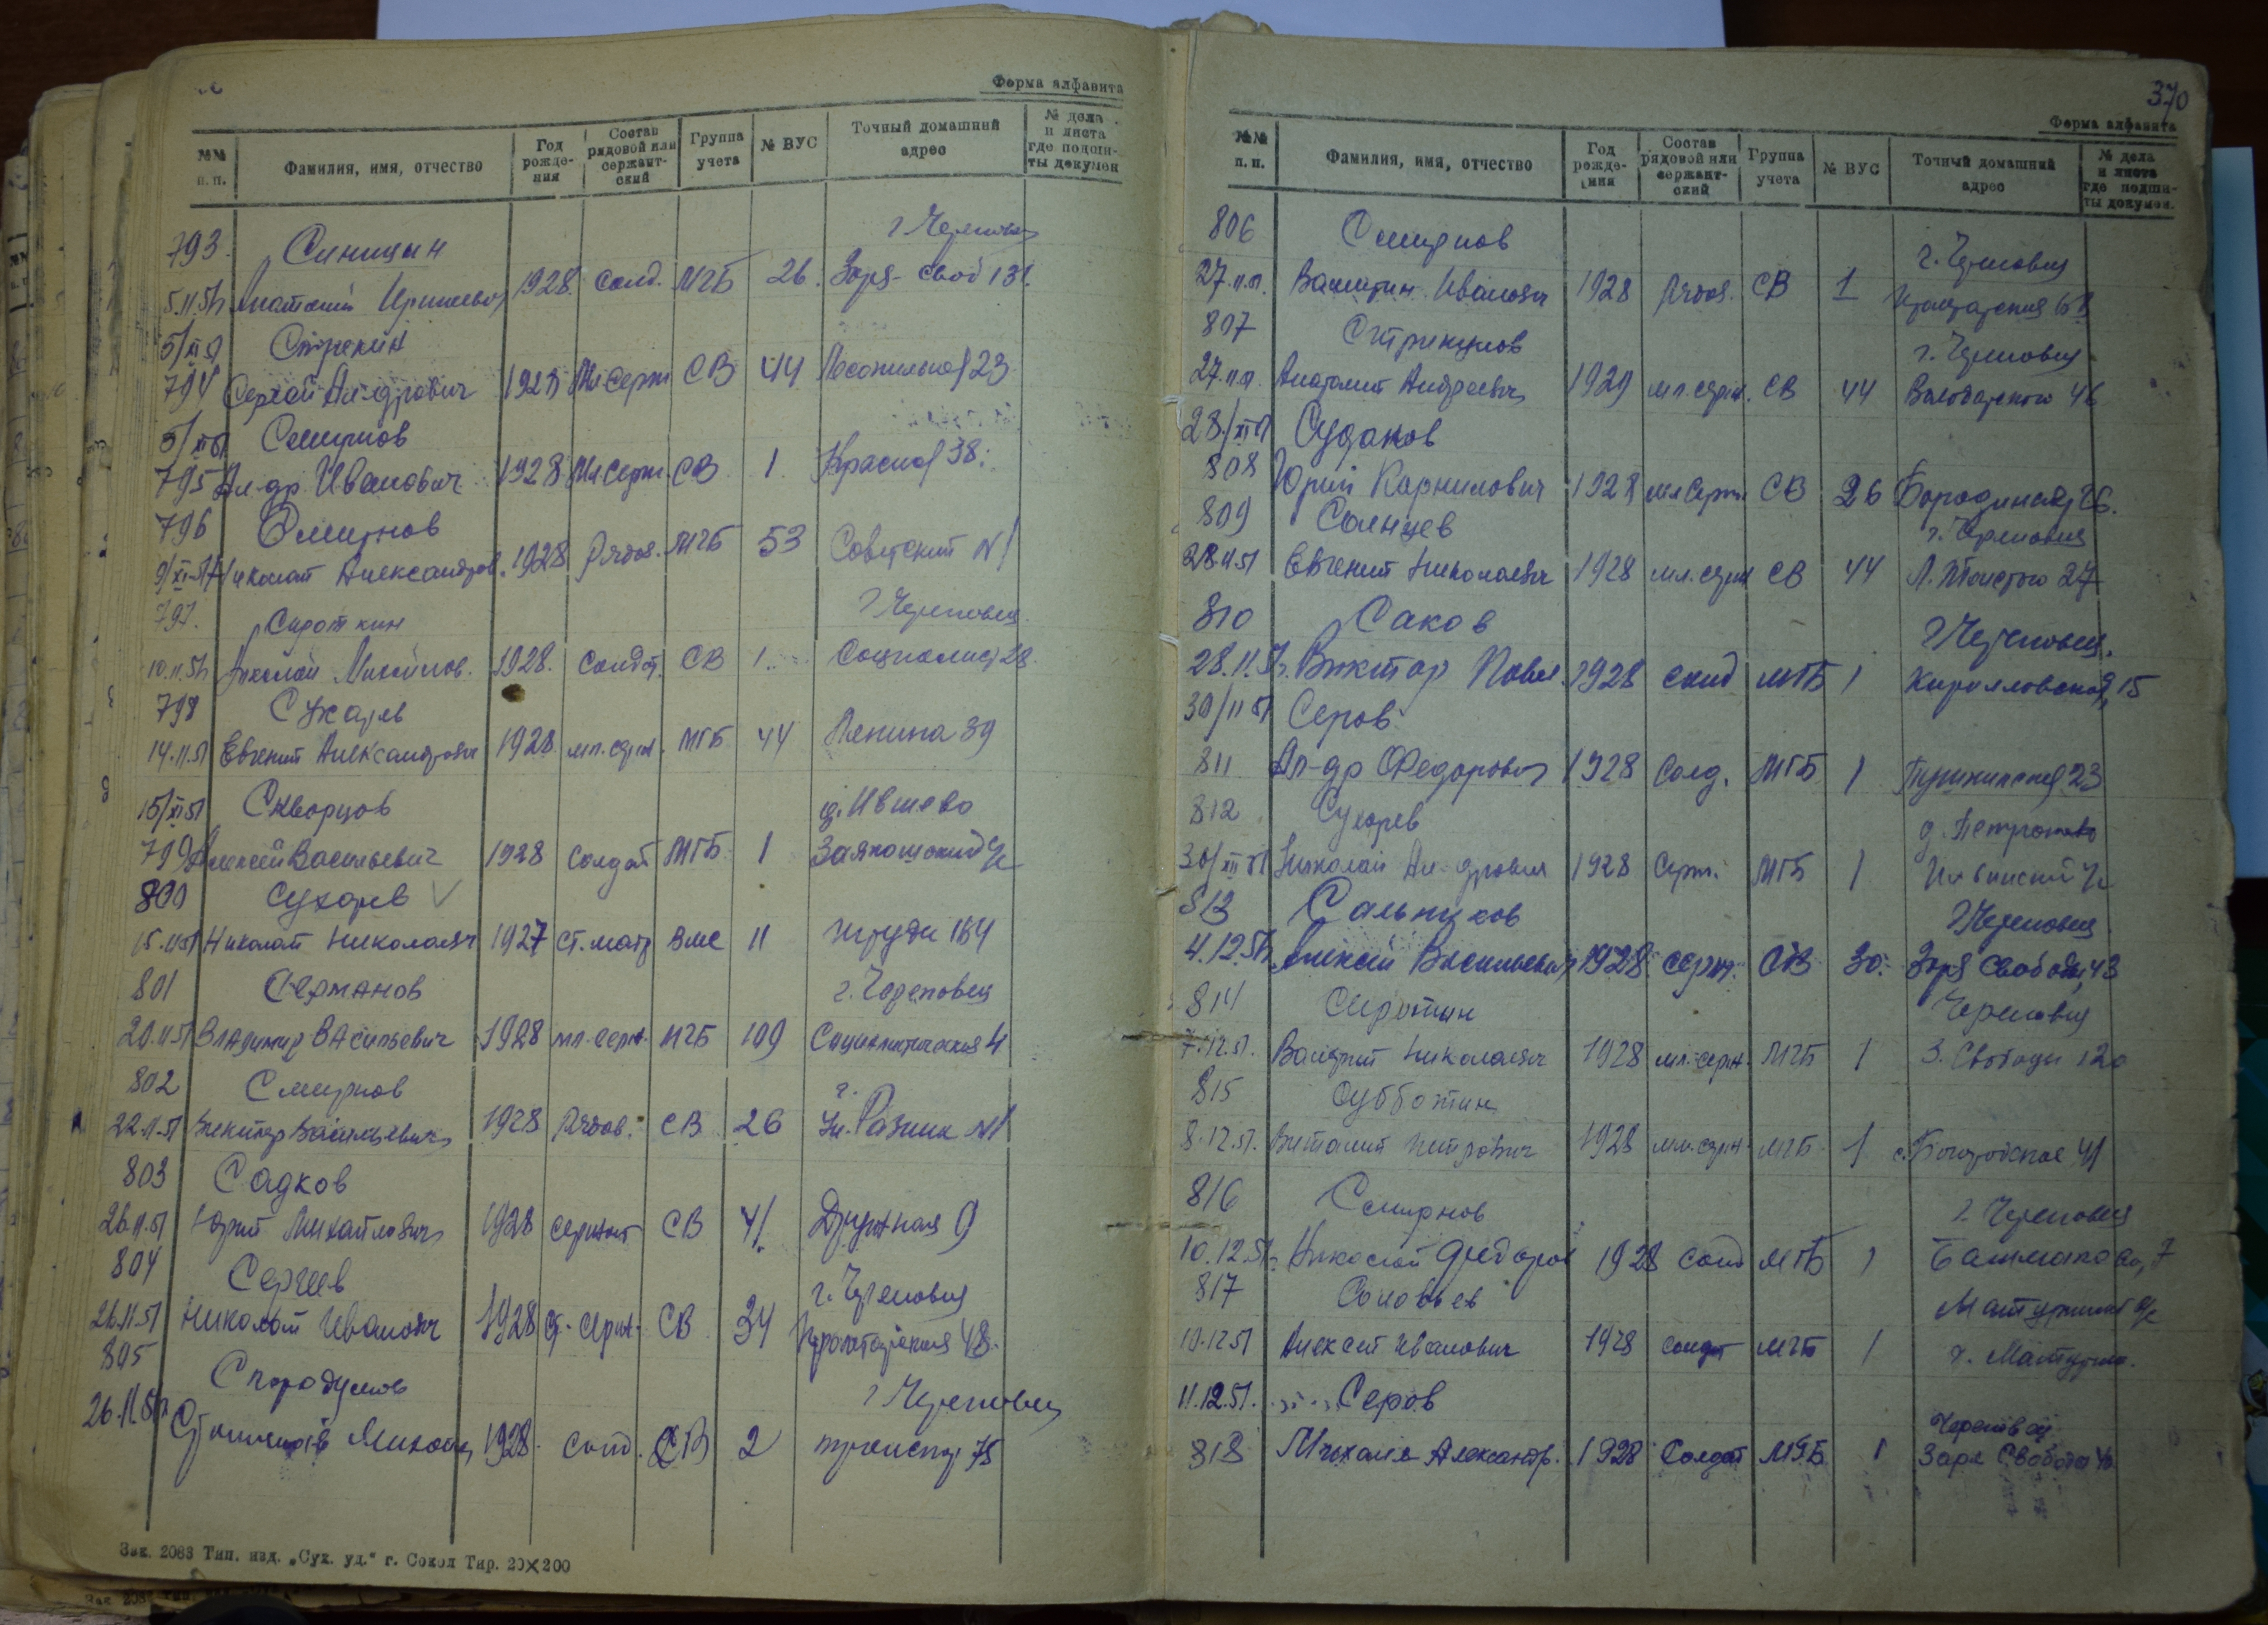 Форма алфавита
№№ п. п. Фамилия, имя, отчество Год рождения Состав рядовой или сержантский Группа учета № ВУС Точный домашний адрес № дела и листа где подшиты докумен
793 Синицын г Череповец
5.11.51 Анатолий 1928 солд. МГБ 26. Заря-своб 131.
5/XI 51 Стрекин
794 Сергей Ал-дрович 1928 Мл Серж СВ 44 Лесопильная 23
5/XI 51 Смирнов
795 Ал-др Иванович 1928 Мл Серж. СВ 1 Красная 38.
796 Смирнов
9/XI-51 Николай Александров. 1928 Рядов. МГБ 53 Советский №1
797. Сироткин г Череповец.
10.11.51 Николай 1928. Солдат. СВ 1. Социалист 28.
798 Сухарев
14.11.51 Евгений Александрович 1928 мл. серж. МГБ 44 Ленина 39
15/XI 51 Скворцов д. Ившево
799 Алексей Васильевич 1928 Солдат МГБ 1
800 Сухарев √
15.11.51 Николай Николаевич 1927 ст. матр ВМС 11 Труда 184
801 Серманов г. Череповец
20.11.51 Владимир Васильевич 1928 мл. серж. МГБ 109 Социалистическая 4
802 Смирнов г.
22.11.51 Виктор Васильевич 1928 Рядов. СВ 26 Ул. Разина №1
803 Садков
26.11.51 Юрий Михайлович 1928 Сержант СВ 41. Дружная 9
804 Сергеев г. Череповец
26.11.51 Николай Иванович 1928 Ст. Серж. СВ 34 Пролетарская 48.
805 Стародумов г Череповец
26.11.51 1928. солд. СВ 2 75
Зак. 2083 Тип. изд. „Сух. уд.“ г. Сокол Тир. 20×200
370
Форма алфавита
№№ п. п. Фамилия, имя, отчество Год рождения Состав рядовой или сержантский Группа учета № ВУС Точный домашний адрес № дела и листа где подшиты докумен.
806 Смирнов г. Череповец
27.11.51. Валентин Иванович 1928 Рядов. СВ 1 Пролетарская
807 Стрекунов г. Череповец
27.11.51. Анатолий Андреевич 1929 мл. серж. СВ 44 Володарского 46
28/XI 51 Судаков
808 Юрий Карнилович 1928 мл Серж. СВ 26 Бородинская 26.
809 Солнцев г. Череповец
28.11.51 Евгений Николаевич 1928 мл. серж СВ 44 Л. Толстого 27
810 Саков г Череповец.
28.11.51. Виктор Павл. 1928 солд МГБ 1 Кирилловская, 15
30/11 51 Серов
811 Ал-др Федорович 1928 Солд. МГБ 1 Пушкинская 23
812 Сухарев д. Петроково
Николай Ал-дрович 1928 Серж. МГБ 1
813 Сальников г Череповец
4.12.51 Алексей Васильевич 1928 серж. СВ 30. Заря Свободы, 43
814 Сиротин Череповец
7.12.51. Валерий Николаевич 1928 мл. серж. МГБ 1 З. Свободы 120
815 Субботин
8.12.51. Виталий Петрович 1928 мл. серж. МГБ 1 с. Богородское 41
816 Смирнов г. Череповец
10.12.51. Николай Федоров 1928 солд МГБ 1 Башмакова, 7
817 Соловьев Матуринский с/с
10.12.51 Алексей Иванович 1928 солдат МГБ 1 д. Матурино.
11.12.51. Серов Череповец
818 Михаил Александр. 1928 Солдат МГБ 1 Заря Свободы